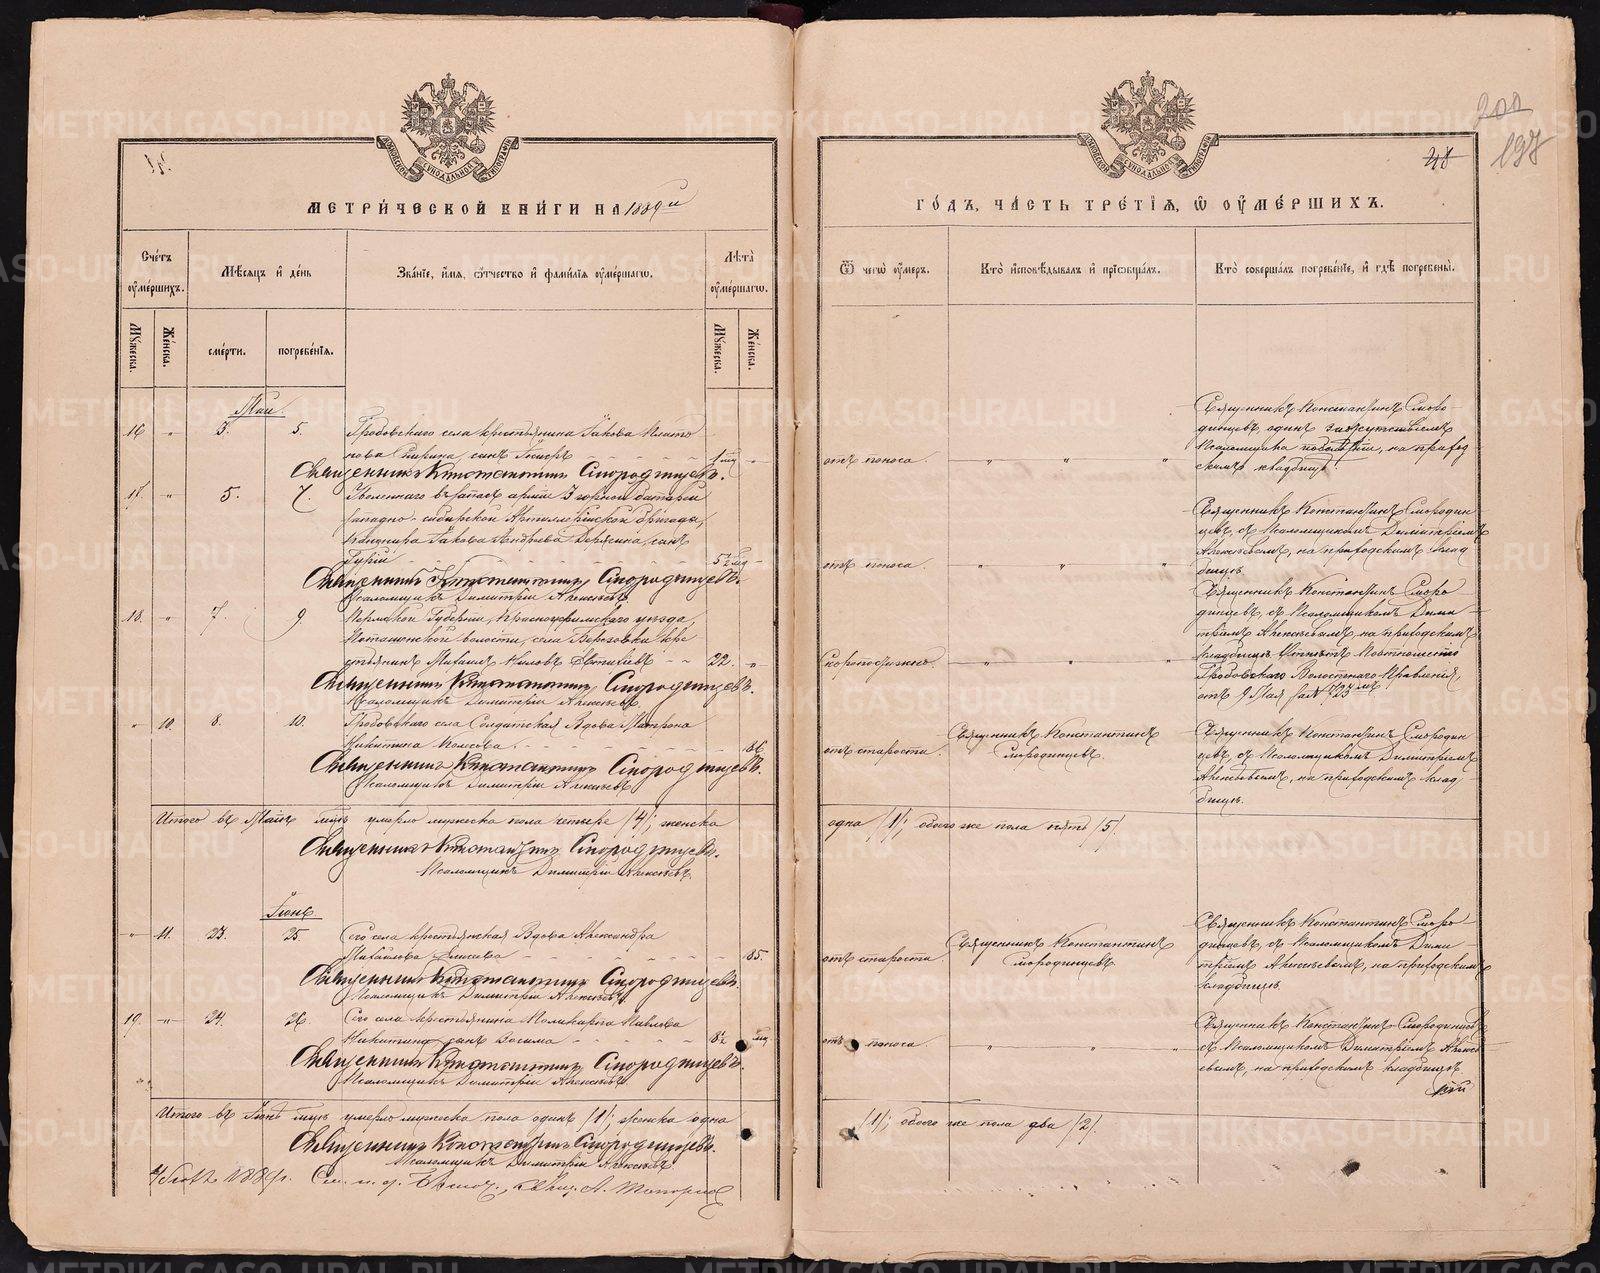 МЕТРИ́ЧЕСКОЙ КНИ́ГИ НА 1889й
Сче́тъ оу҆ме́ршихъ.
Мѣ́сяцъ и҆ де́нь
Зва́нїе, и҆́мя, ѻ҆́тчество и҆ фами́лїя оу҆ме́ршагѡ.
Лѣ́та оу҆ме́ршагѡ.
Мꙋ́жеска.
Же́нска.
сме́рти.
погребе́нїя.
Мꙋ́жеска.
Же́нска.
Май.
16 " 3. 5. Гробовскаго села крестьянина Іакова
сынъ
Священникъ Константинъ Смородинцевъ.
17. " 5. 7. Уволеннаго въ запасъ арміи 3 горной батареи
западно-сибирской Артиллерійской бригады,
Іакова Андреева сынъ
Гурій
Священникъ Константинъ Смородинцевъ.
Псаломщикъ Димитрій Алексѣевъ
18. " 7. 9. Пермской Губерніи, Красноуфимскаго уѣзда,
Поташинской волости, села Березовки кре
стьянинъ Михаилъ 22. "
Священникъ Константинъ Смородинцевъ.
Псаломщикъ Димитрій Алексѣевъ.
" 10. 8. 10. Гробовскаго села Солдатская Вдова Матрона
Никитина 86
Священникъ Константинъ Смородинцевъ.
Псаломщикъ Димитрій Алексѣевъ
Итого въ Маѣ мцѣ умерло мужеска пола четыре /4/; женска
Священникъ Константинъ Смородинцевъ.
Псаломщикъ Димитрій Алексѣевъ.
Іюнь
" 11. 23. 25. Сего села крестьянская Вдова Александра
Михайлова 85.
Священникъ Константинъ Смородинцевъ.
Псаломщикъ Димитрій Алексѣевъ
19. " 24. 26. Сего села крестьянина Поликарпа Павлова
Никитина сынъ Зосима
Священникъ Константинъ Смородинцевъ.
Псаломщикъ Димитрій Алексѣевъ.
Итого въ Іюнѣ мцѣ умерло мужеска пола одинъ /1/; женска одна
Священникъ Константинъ Смородинцевъ.
Псаломщикъ Димитрій Алексѣевъ
1889г.
200
197
48
ГО́ДЪ, ЧА́СТЬ ТРЕ́ТЇЯ, Ѡ҆ ОУ҆МЕ́РШИХЪ.
Ѿ чегѡ̀ оу҆́меръ.
Кто̀ и҆сповѣ́дывалъ и҆ прїѡбща́лъ.
Кто̀ соверша́лъ погребе́нїе, и҆ гдѣ̀ погребены̀.
Священникъ Константинъ Сморо-
динцевъ, одинъ за отсутствіемъ
Псаломщика на приход
скомъ кладбищѣ
отъ поноса. " " "
Священникъ Константинъ Смородин
цевъ, съ Псаломщикомъ Димитріемъ
Алексѣевымъ, на приходскомъ клад
бищѣ.
отъ поноса. " " "
Священникъ Константинъ Сморо-
динцевъ, съ Псаломщикомъ Дими-
тріемъ Алексѣевымъ, на приходскомъ
кладбищѣ
Гробовскаго Волостнаго Правленія,
отъ 9 Мая за №
Скоропостижно. " " "
отъ старости. Священникъ Константинъ
Смородинцевъ.
Священникъ Константинъ Смородин
цевъ, съ Псаломщикомъ Димитріемъ
Алексѣевымъ, на приходскомъ клад
бищѣ.
одна /1/; обоего же пола пять /5/.
отъ старости Священникъ Константинъ
Смородинцевъ.
Священникъ Константинъ Сморо-
динцевъ, съ Псаломщикомъ Дими-
тріемъ Алексѣевымъ, на приходскомъ
кладбищѣ.
отъ поноса. " " "
Священникъ Константинъ Смородинцевъ
съ Псаломщикомъ Димитріемъ Алексѣ-
евымъ, на приходскомъ кладбищѣ
/1/; обоего же пола два /2/.
METRIKI.GASO-URAL.RU